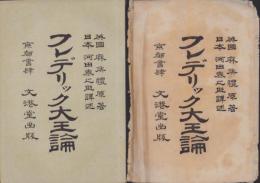 英國 麻辛禮原著
日本 河田𣳾之助譯述
フレデリック大王論
京都書肆 文港堂出版
英國 麻辛禮原著
日本 河田𣳾之助譯述
フレデリック大王論
京都書肆 文港堂出版